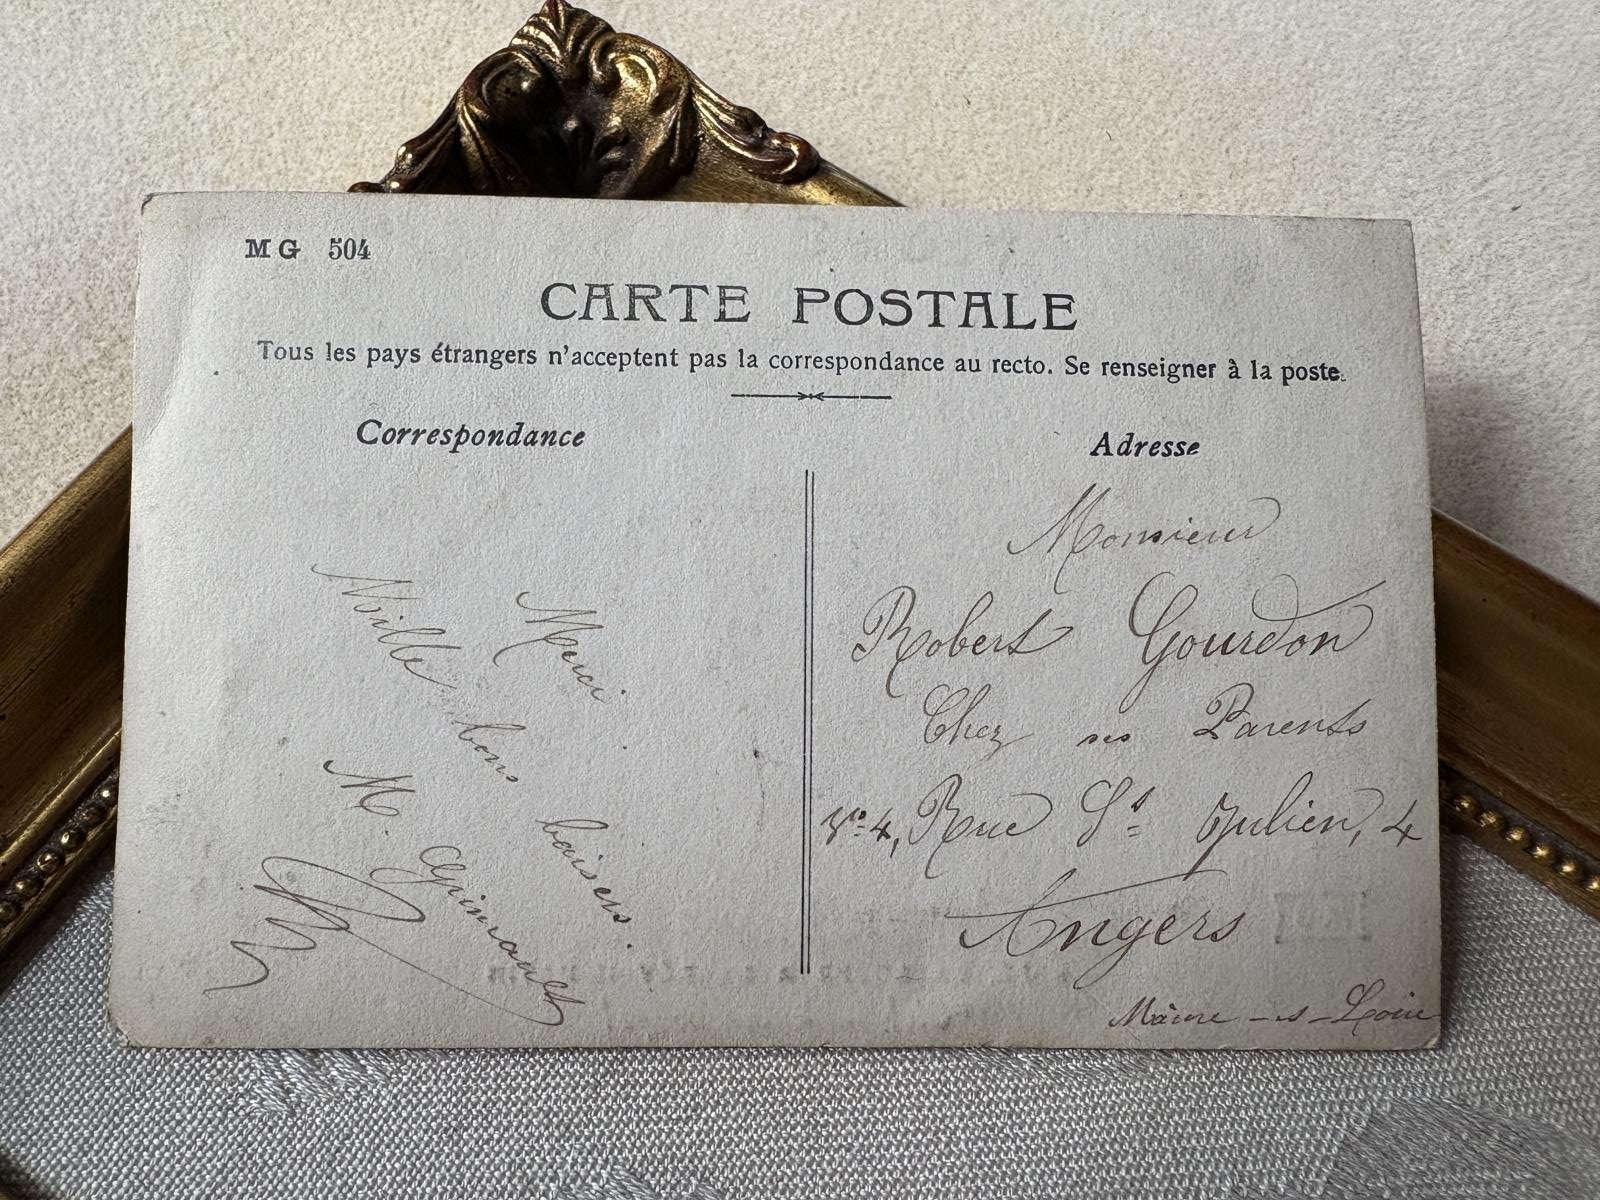 MG 504
CARTE POSTALE
Tous les pays étrangers n'acceptent pas la correspondance au recto. Se renseigner à la poste.
Correspondance
Merci
Mille bons baisers.
M. Grimault
Adresse
Monsieur
Robert Gourdon
Chez ses Parents
4, Rue St Julien, 4
Angers
Maine-s-Loire